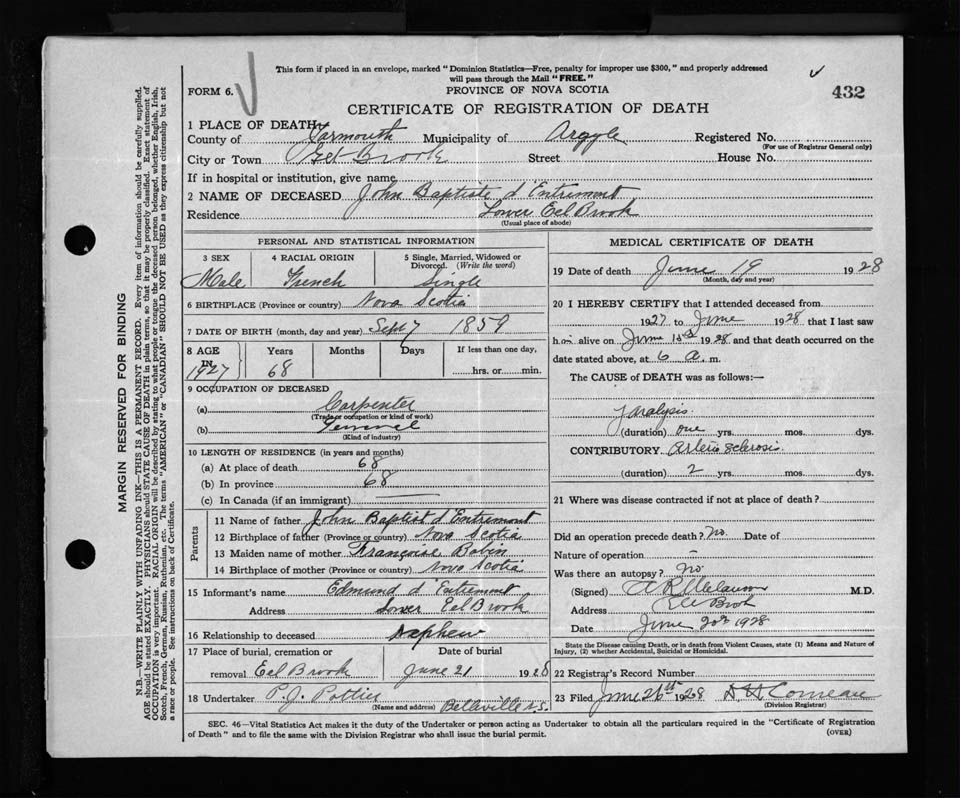 This form if placed in an envelope, marked "Dominion Statistics—Free, penalty for improper use $300," and properly addressed
will pass through the Mail "FREE."
FORM 6.
PROVINCE OF NOVA SCOTIA
432
CERTIFICATE OF REGISTRATION OF DEATH
1 PLACE OF DEATH
County of Yarmouth Municipality of Argyle Registered No.
(For use of Registrar General only)
City or Town Eel Brook Street House No.
If in hospital or institution, give name
2 NAME OF DECEASED John Baptiste d'Entremont
Residence Lower Eel Brook
(Usual place of abode)
PERSONAL AND STATISTICAL INFORMATION
3 SEX 4 RACIAL ORIGIN 5 Single, Married, Widowed or
Divorced. (Write the word)
Male French Single
6 BIRTHPLACE (Province or country) Nova Scotia
7 DATE OF BIRTH (month, day and year) Sept 7 1859
8 AGE Years Months Days If less than one day,
IN
1927 68 hrs. or min.
9 OCCUPATION OF DECEASED
(a) Carpenter
(Trade or occupation or kind of work)
(b) General
(Kind of industry)
10 LENGTH OF RESIDENCE (in years and months)
(a) At place of death 68
(b) In province 68
(c) In Canada (if an immigrant)
Parents
11 Name of father John Baptist d'Entremont
12 Birthplace of father (Province or country) Nova Scotia
13 Maiden name of mother Françoise Babin
14 Birthplace of mother (Province or country) Nova Scotia
15 Informant's name Edmund d'Entremont
Address Lower Eel Brook
16 Relationship to deceased Nephew
17 Place of burial, cremation or Date of burial
removal Eel Brook June 21 1928
18 Undertaker P. J. Pottier
(Name and address) Belleville N.S.
MEDICAL CERTIFICATE OF DEATH
19 Date of death June 19 1928
(Month, day and year)
20 I HEREBY CERTIFY that I attended deceased from
1927 to June 1928 that I last saw
him alive on June 1928 and that death occurred on the
date stated above, at 6 a. m.
The CAUSE of DEATH was as follows:—
Paralysis
(duration) one yrs. mos. dys.
CONTRIBUTORY Arterio Sclerosis
(duration) 2 yrs. mos. dys.
21 Where was disease contracted if not at place of death?
Did an operation precede death? no. Date of
Nature of operation –
Was there an autopsy? no
(Signed) M.D.
Address Eel Brook
Date June 20th 1928
State the Disease causing Death, or in death from Violent Causes, state (1) Means and Nature of
Injury, (2) whether Accidental, Suicidal or Homicidal.
22 Registrar's Record Number
23 Filed June 26th 1928 Comeau
(Division Registrar)
SEC. 46—Vital Statistics Act makes it the duty of the Undertaker or person acting as Undertaker to obtain all the particulars required in the "Certificate of Registration
of Death" and to file the same with the Division Registrar who shall issue the burial permit.
(OVER)
MARGIN RESERVED FOR BINDING
N.B.—WRITE PLAINLY WITH UNFADING INK—THIS IS A PERMANENT RECORD. Every item of information should be carefully supplied.
AGE should be stated EXACTLY. PHYSICIANS should STATE CAUSE OF DEATH in plain terms, so that it may be properly classified. Exact statement of
OCCUPATION is very important. RACIAL ORIGIN will be described by stating to what people or tongue the deceased person belonged, whether English, Irish,
Scotch, French, German, Russian, Ruthenian, etc. The terms "AMERICAN" or "CANADIAN" SHOULD NOT BE USED as they express citizenship but not
a race or people. See instructions on back of Certificate.